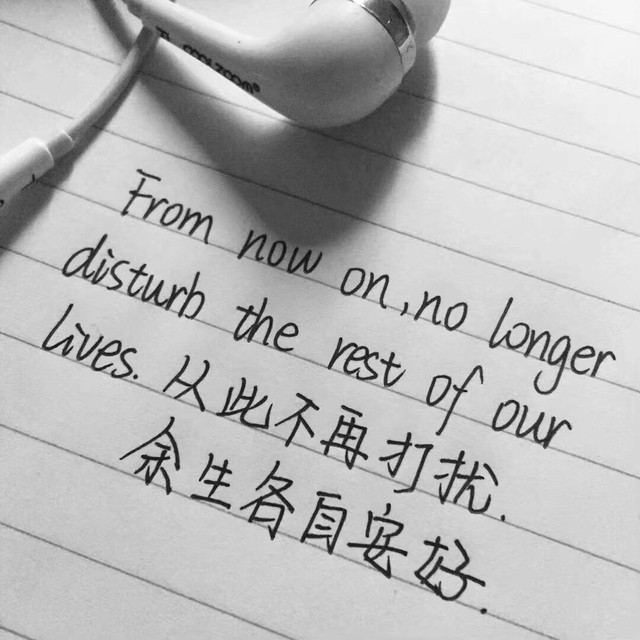 COOLZOOM®
From now on, no longer
disturb the rest of our
lives. 从此不再打扰.
余生各自安好.